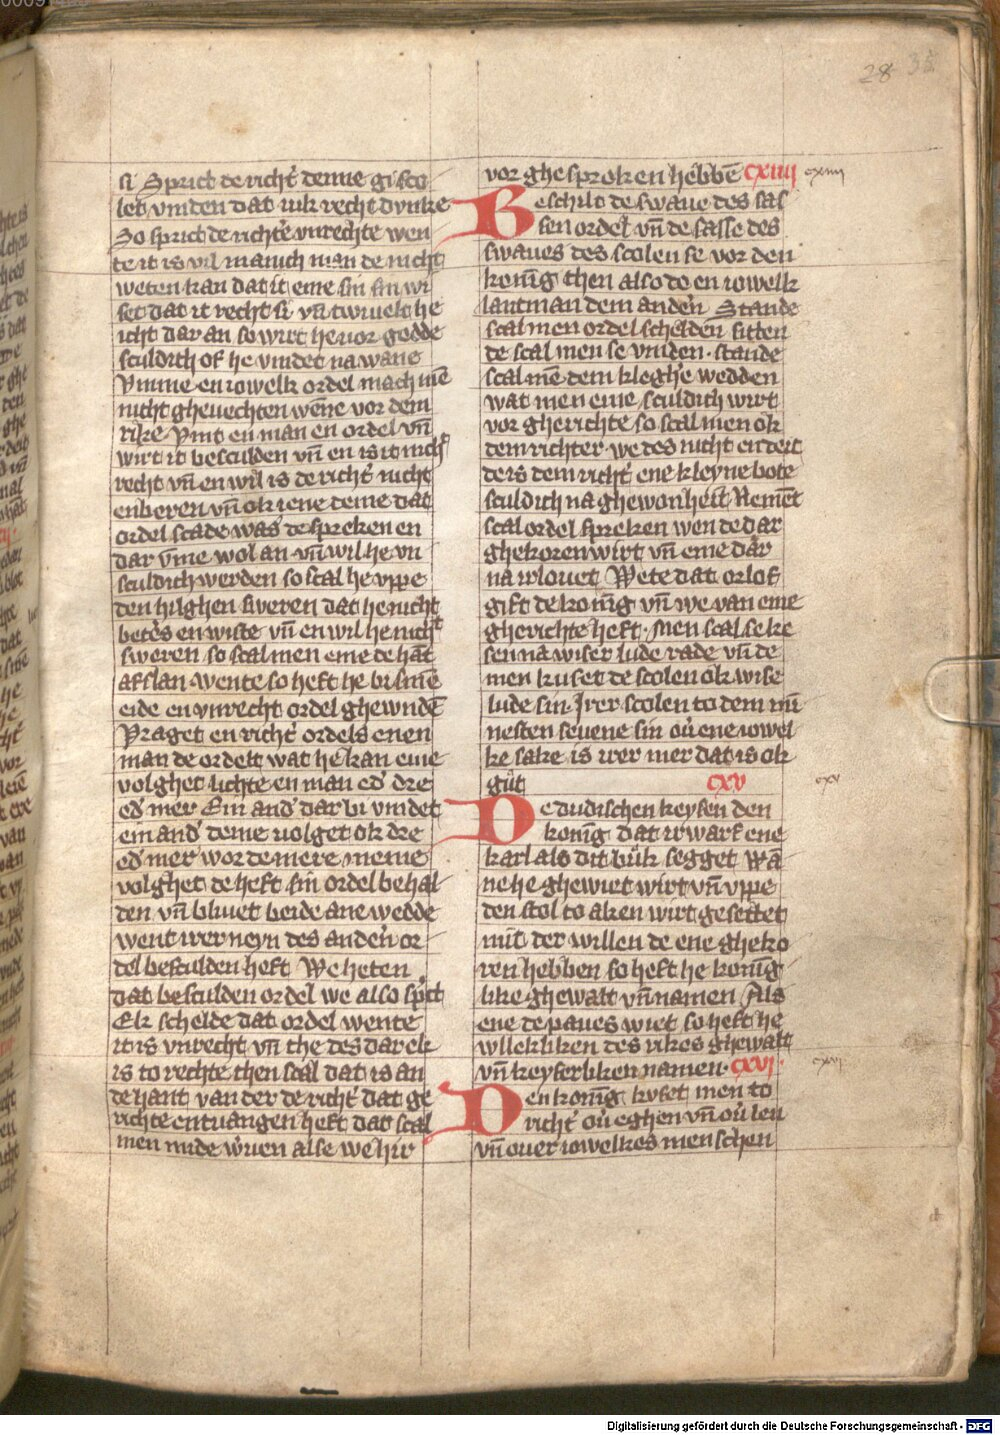 28 35
si Sprict de richt' denne gi sco
let vinden dat iuk recht dunke
So sprict de richte' vnrechte wen
te it is vil manich man de nicht
weten kan dat it eme sin sin wi
set dat it recht si vn̄ twiuelt he
icht dar an so wirt he vor godde
sculdich of he vindet na wane
Vmme en iowelk ordel mach mē
nicht gheuechten wēne vor dem
rike Vint en man en ordel vn̄
wirt it besculden vn̄ en is it nich
recht vn̄ en wil is de richt' nicht
enberen vn̄ ok iene deme dat
ordel scade was de spreken en
dar vm̄e wol an vn̄ wil he vn
sculdich werden so scal he vppe
den hilghen sweren dat he nicht
beters en wiste vn̄ en wil he nicht
sweren so scal men eme de hāt
afslan wente so heft he bi sinē
eide en vnrecht ordel ghewndē
Vraget en richt' ordels enen
man de ordelt wat he kan eme
volghet lichte en man ed' dre
ed' mer Ein and' dar bi vindet
ein and' deme uolget ok dre
ed' mer wor de mere menie
volghet de heft sin ordel behal
den vn̄ bliuet beide ane wedde
went irer neyn des anden' or
del besculden heft We heten
dat besculden ordel we also sp'ict
Ek schelde dat ordel wente
it is vnrecht vn̄ the des dar ek
is to rechte then scal dat is an
de hant van der de richt' dat ge
richte entuangen heft dat scal
men mide w'uen alse we hir
vor ghesproken hebbē cxiiij cxiiij
Beschilt de swaue des sas
sen ordel vn̄ de sasse des
swaues des scolen se vor den
konīg then also do en iowelk
lantman dem anden' Stande
scal men ordel schelden sitten
de scal men se vinden · stande
scal mē dem kleghe' wedden
wat men eme sculdich wirt
vor gherichte so scal men ok
dem richter we des nicht en deit
de is dem richt' ene kleyne bote
sculdich na ghewonheit Nemēt
scal ordel spreken wen de dar
ghekoren wirt vn̄ eme dar
na irlouet Wete dat orlof
gift de konīg vn̄ we van eme
gherichte heft · Men scal se ke
sen na wiser lude rade vn̄ de
men kuset de scolen ok wise
lude sin · Irer scolen to dem mī
nesten seuene sin ou' ene iowel
ke sake is irer mer dat is ok
gůt cxv cxv
De dudischen keysen den
konīg dat irwarf ene
karl als dit bůk segget wā
ne he ghewiet wirt vn̄ vppe
den stol to aken wirt gesettet
mit der willen de ene gheko
ren hebben so heft he konīg
like ghewalt vn̄ namen Als
ene de paues wiet so heft he
wllekliken des rikes ghewalt
vn̄ keyserliken namen · cxvi · cxvi
Den konīg kvset men to
richt' ou' eghen vn̄ ou' len
vn̄ ouer iowelkes menschen
Digitalisierung gefördert durch die Deutsche Forschungsgemeinschaft - DFG